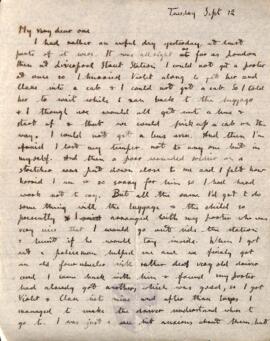 Tuesday Sept 12
My very dear one
I had rather an awful day yesterday, at least
parts of it were. It was all right as far as London
then at Liverpool Street Station I could not get a porter
at once so I hurried Violet along to get her and
Clare into a cab & I could not get a cab. So I told
her to wait while I ran back to the luggage
& I thought we would all get into a bus &
start off & that we could pick up a cab on the
way. I could not get a bus even. And then I'm
afraid I lost my temper not to any one but in
myself. And then a poor wounded soldier on a
stretcher was put down close to me & I felt how
horrid I am & so sorry for him so I had
not to cry. But all the same I'd got to do
some thing with the luggage & the child so
presently I arranged with my porter who was
very nice that I would go outside the station
& wait if he would stay inside. When I got
out a policeman helped me and we finally got
an old four wheeler with rather deaf very old driver
and I went back with him & found my porter
had already got another, which was good, so I got
Violet & Clare into mine and after two loops I
managed to make the driver understand what to
go to. I was just a bit anxious about them, but